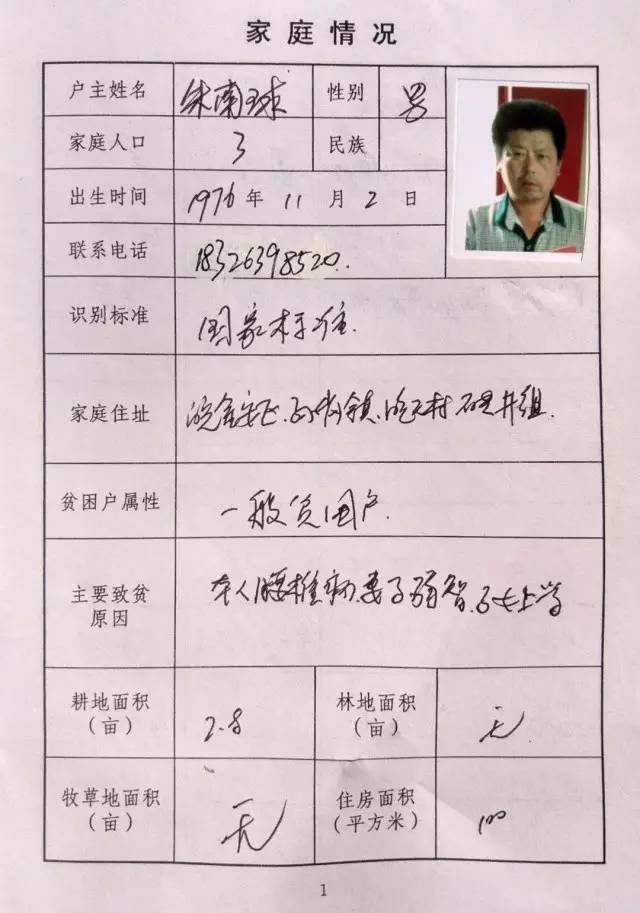 家庭情况
户主姓名 朱南球 性别 男
家庭人口 3 民族
出生时间 1976年11月2日
联系电话 18326398520.
识别标准 国家标准.
家庭住址 镇 村 井组.
贫困户属性 一般贫困户.
主要致贫 本人腰椎病.妻子弱智.子女上学
原因
耕地面积 2.8 林地面积 无
(亩) (亩)
牧草地面积 无 住房面积 100
(亩) (平方米)
1